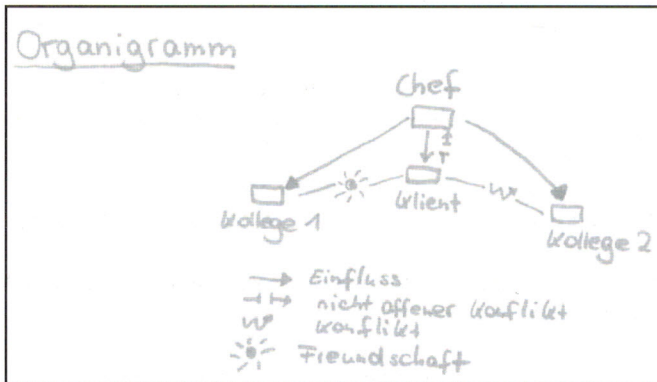 Organigramm
Chef
Klient
Kollege 1
Kollege 2
Einfluss
nicht offener Konflikt
Konflikt
Freundschaft